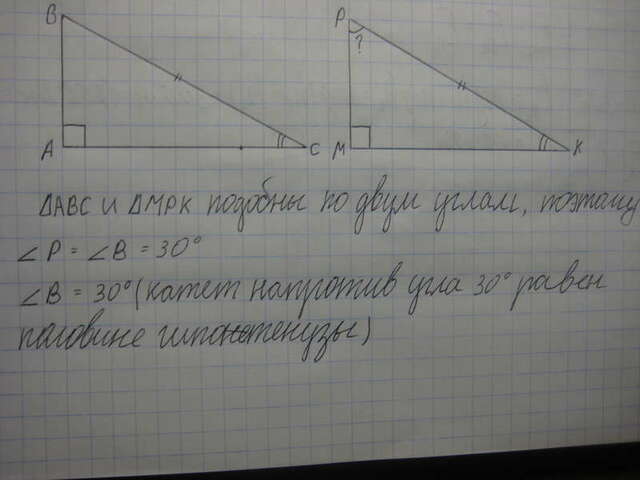 B P
?
A C M K
ΔABC и ΔMPK подобны по двум углам, поэтому
∠P = ∠B = 30°
∠B = 30° (катет напротив угла 30° равен
половине гипонетенузы)